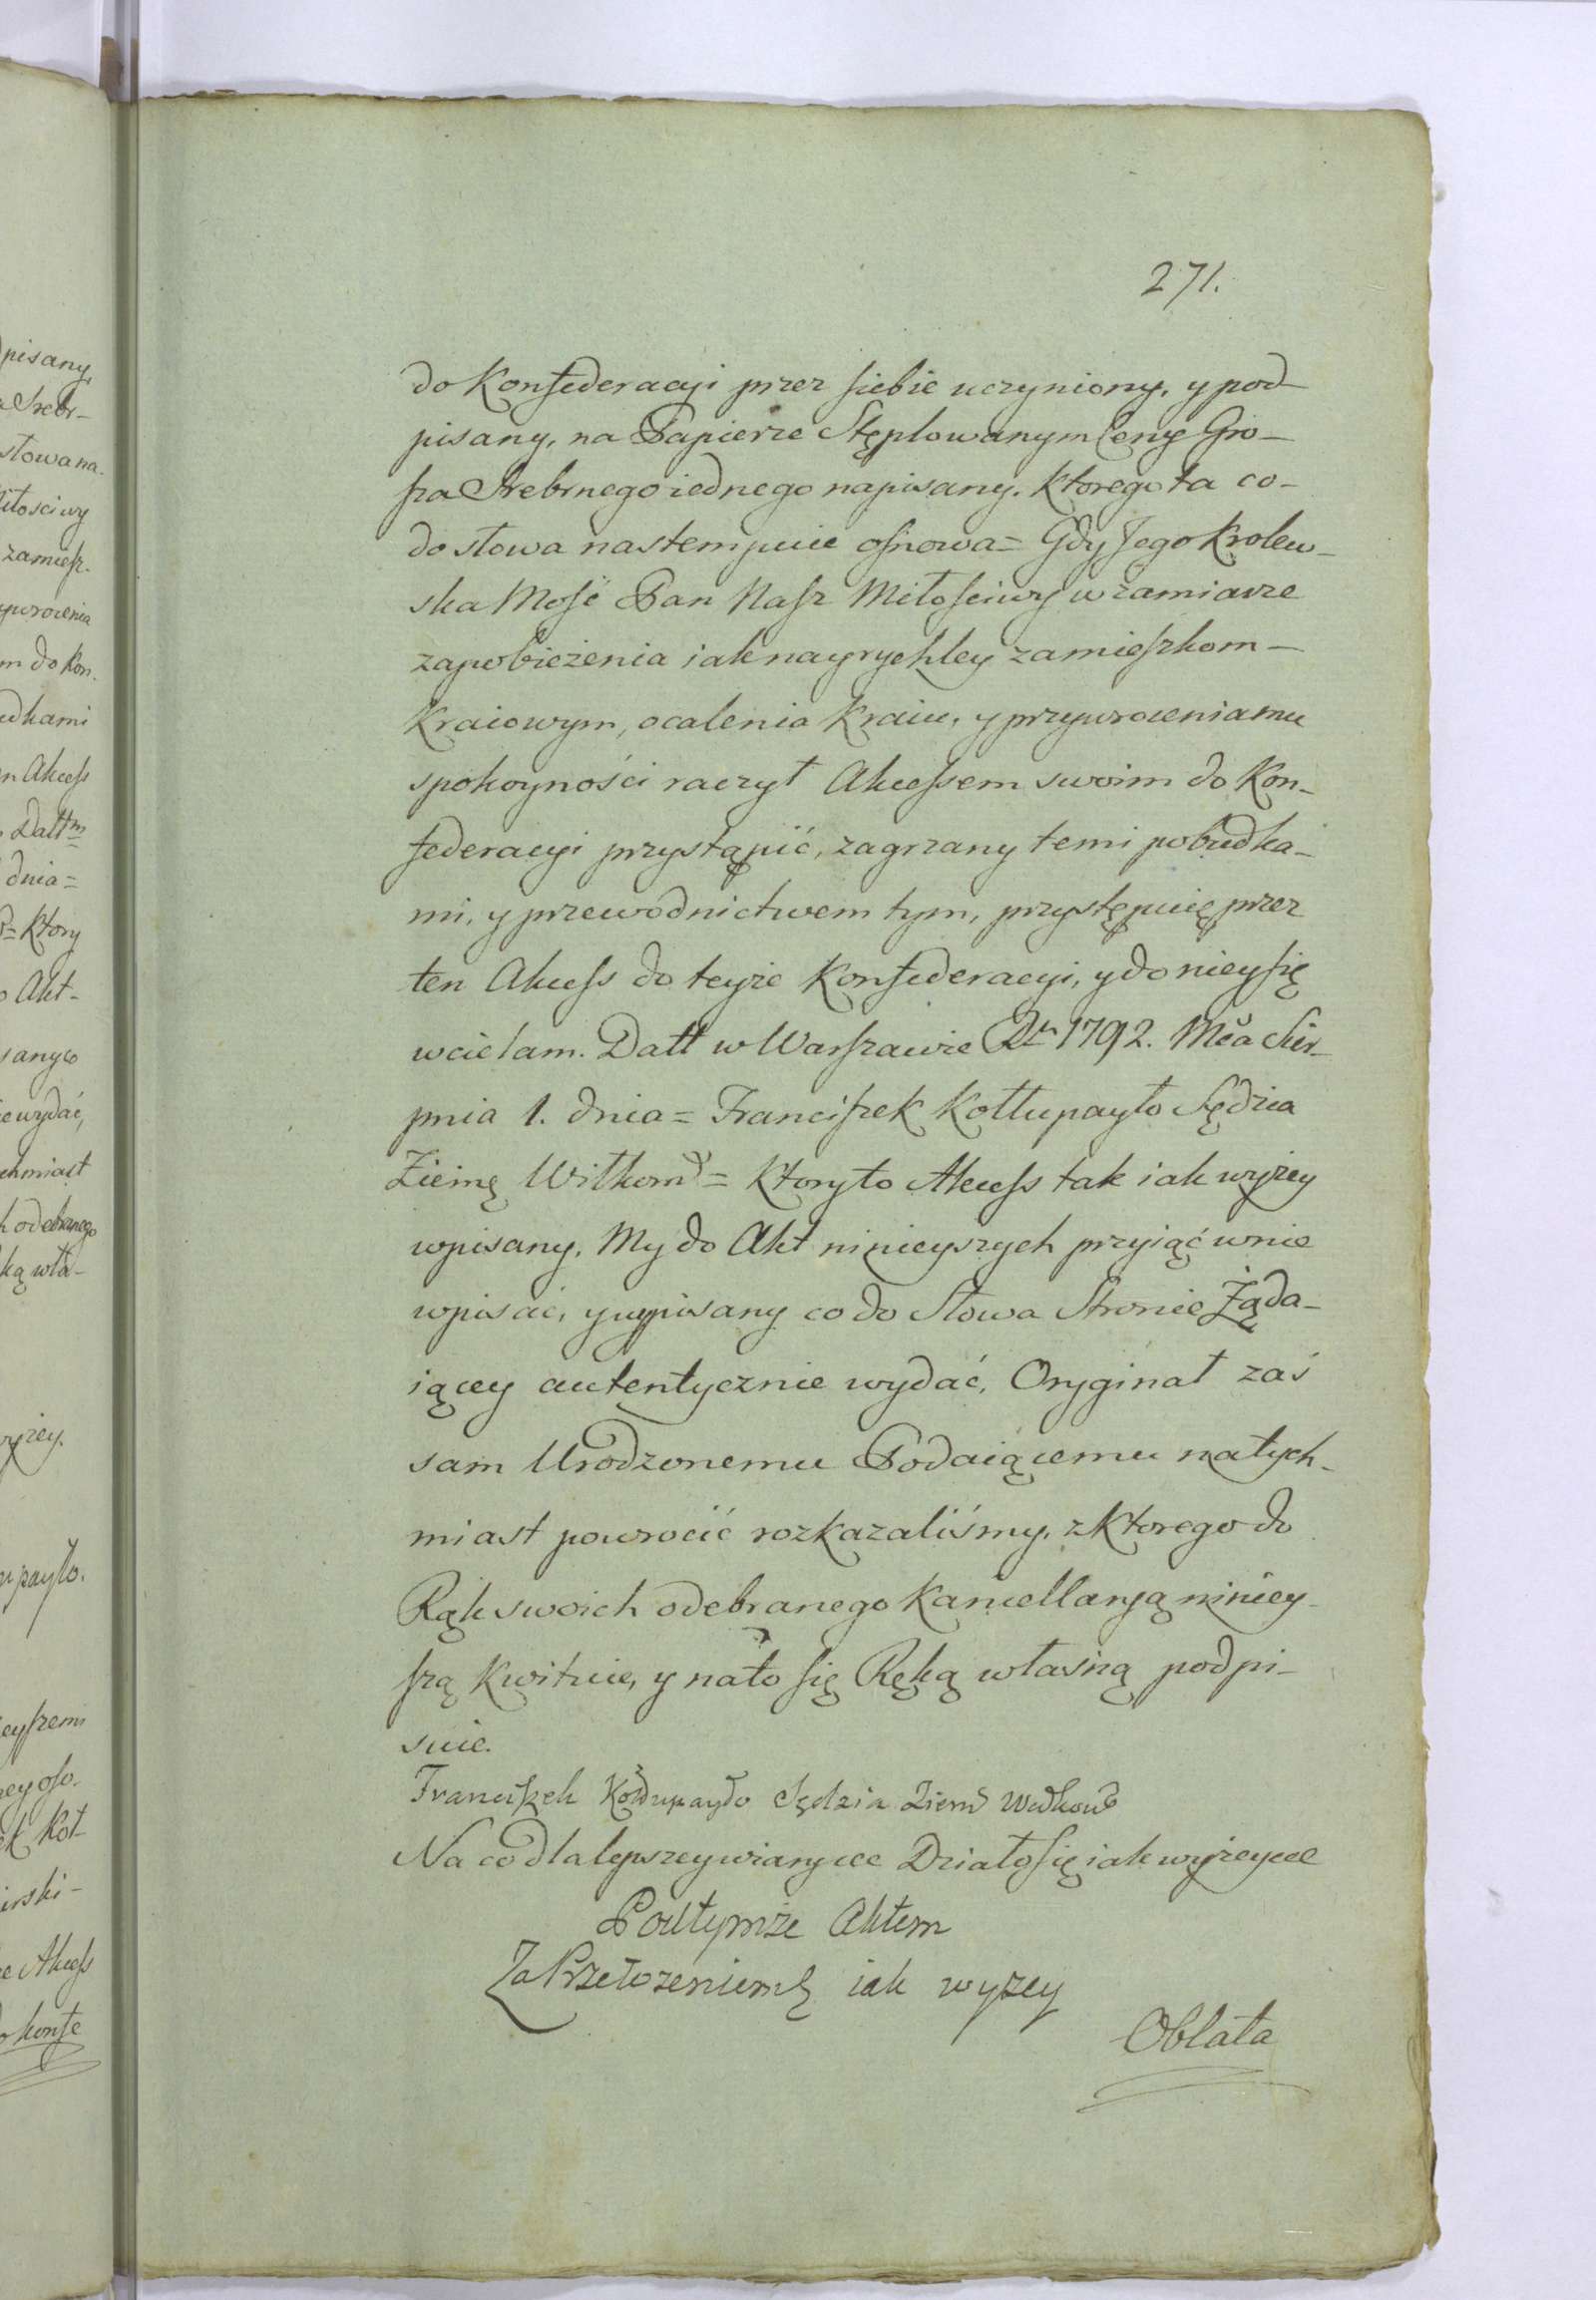 271.
do Konfederacyi przez siebie uczyniony, y pod-
pisany, na Papierze Stęplowanym Ceny Gro-
sza Srebrnego iednego napisany. Ktorego ta co-
do słowa nastempuie osnowa = Gdy Jego Krolew-
ska Mość Pan Nasz Miłościwy w zamiarze
zapobieżenia iak nayrychley zamieszkom-
Kraiowym, ocalenia Kraiu, y przywroceniamu
spokoyności raczył Akcessem swoim do Kon-
federacyi przystąpić, zagrzany temi pobudka-
mi, y przewodnictwem tym, przystępuię przez
ten Akcess do teyże Konfederacyi, y do niey się
wcielam. Datt w Warszawie Rku 1792. Mca Sier-
pnia 1. dnia = Franciszek Kołłupayło Sędzia
Ziemę Wiłkom = Ktory to Akcess tak iak wyżey
wpisany, My do Akt ninieyszych przyiąć w nie
wpisać, y wypisany co do Słowa Stronie Żąda-
iącey autentycznie wydać, Oryginał zaś
sam Urodzonemu Podaiącemu natych-
miast powrocić rozkazaliśmy, z Ktorego do
Rąk swoich odebranego Kancellaryą niniey-
szą Kwituie, y na to się Ręką własną podpi-
suie.
Franciszek Kołłupayło Sędzia Ziem Wiłkom
Na co dla lepszey wiary etc Działo się iak wyżey etc
Pod tymże Aktem
Za Przełożeniem iak wyżey
Oblata
pisany,
Srebr-
słowa na-
miłościwy
zamiesz-
ywrocenia
m do Kon-
udkami
en Akcess
Dattm
dnia =
Ktory
Akt-
wydać,
chmiast
odebranego
ką wła-
wyżey.
upayło.
eyszem
Koł-
irski-
Akcess
do Konfe